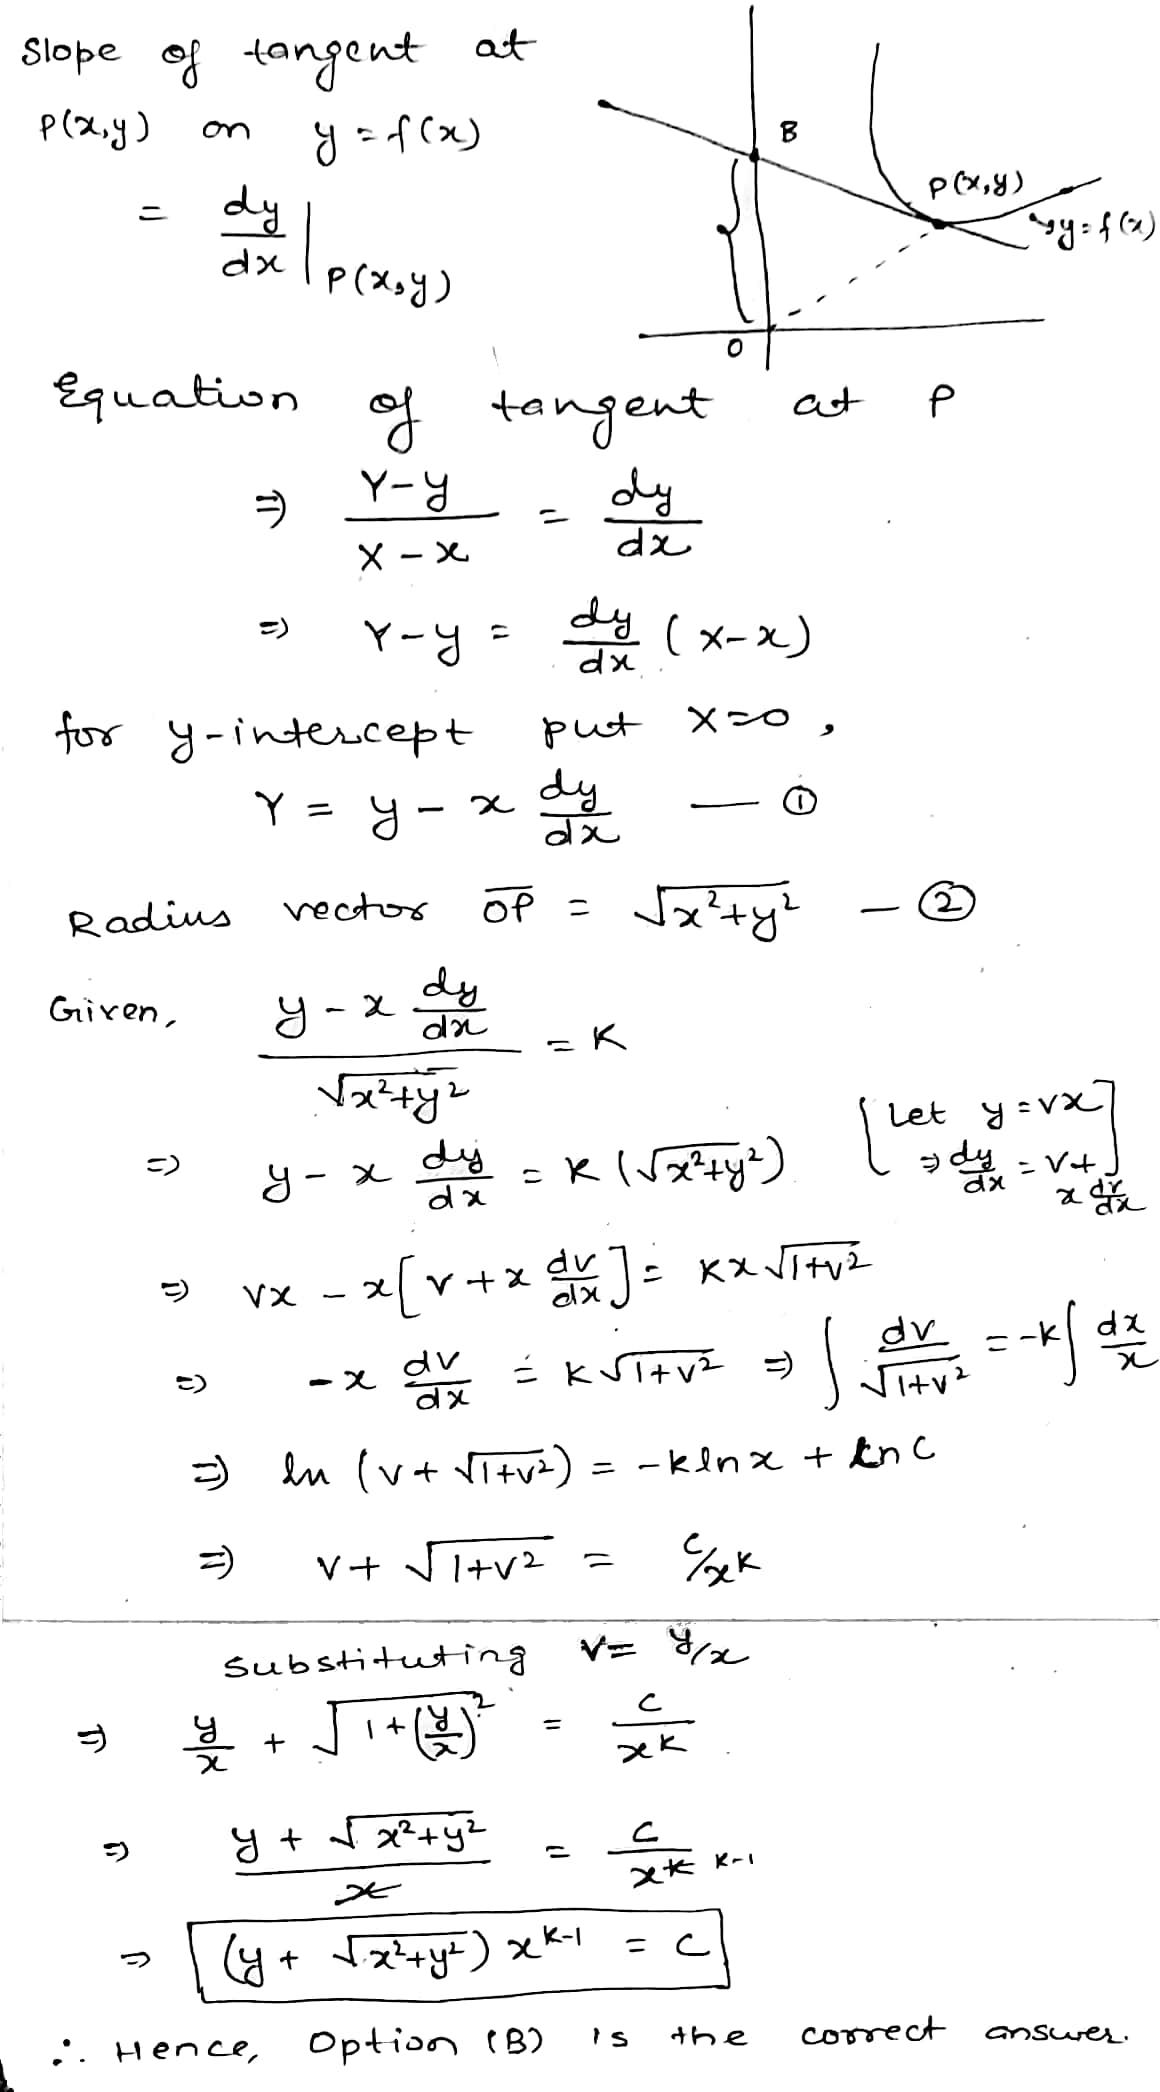 Slope of tangent at
P(x,y) on y = f(x)
= dy/dx |P(x,y)
B
P(x,y)
y = f(x)
O
Equation of tangent at P
⇒ (Y-y)/(X-x) = dy/dx
⇒ Y-y = dy/dx (X-x)
for y-intercept put X=0,
Y = y - x dy/dx — ①
Radius vector OP = √(x²+y²) — ②
Given, (y - x dy/dx)/√(x²+y²) = K
⇒ y - x dy/dx = K (√(x²+y²)) [Let y = vx ⇒ dy/dx = v + x dv/dx]
⇒ vx - x[v + x dv/dx] = Kx√(1+v²)
⇒ -x dv/dx = K√(1+v²) ⇒ ∫ dv/√(1+v²) = -k∫ dx/x
⇒ ln (v + √(1+v²)) = -k ln x + ln c
⇒ v + √(1+v²) = c/x^K
Substituting v = y/x
⇒ y/x + √(1+(y/x)²) = c/x^K
⇒ (y + √(x²+y²))/x = c/x^K K-1
⇒ (y + √(x²+y²)) x^(K-1) = c
∴ Hence, Option (B) is the correct answer.